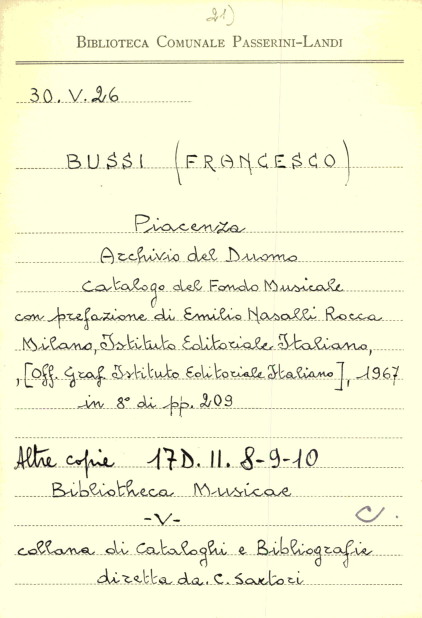 21)
BIBLIOTECA COMUNALE PASSERINI-LANDI
30. V. 26
BUSSI (FRANCESCO)
Piacenza
Archivio del Duomo
Catalogo del Fondo Musicale
con prefazione di Emilio Nasalli Rocca
Milano, Istituto Editoriale Italiano,
,[Off. Graf. Istituto Editoriale Italiano], 1967
in 8° di pp. 209
Altre copie 17D. II. 8-9-10
Bibliotheca Musicae
-V-
C.
collana di Cataloghi e Bibliografie
diretta da C. Sartori